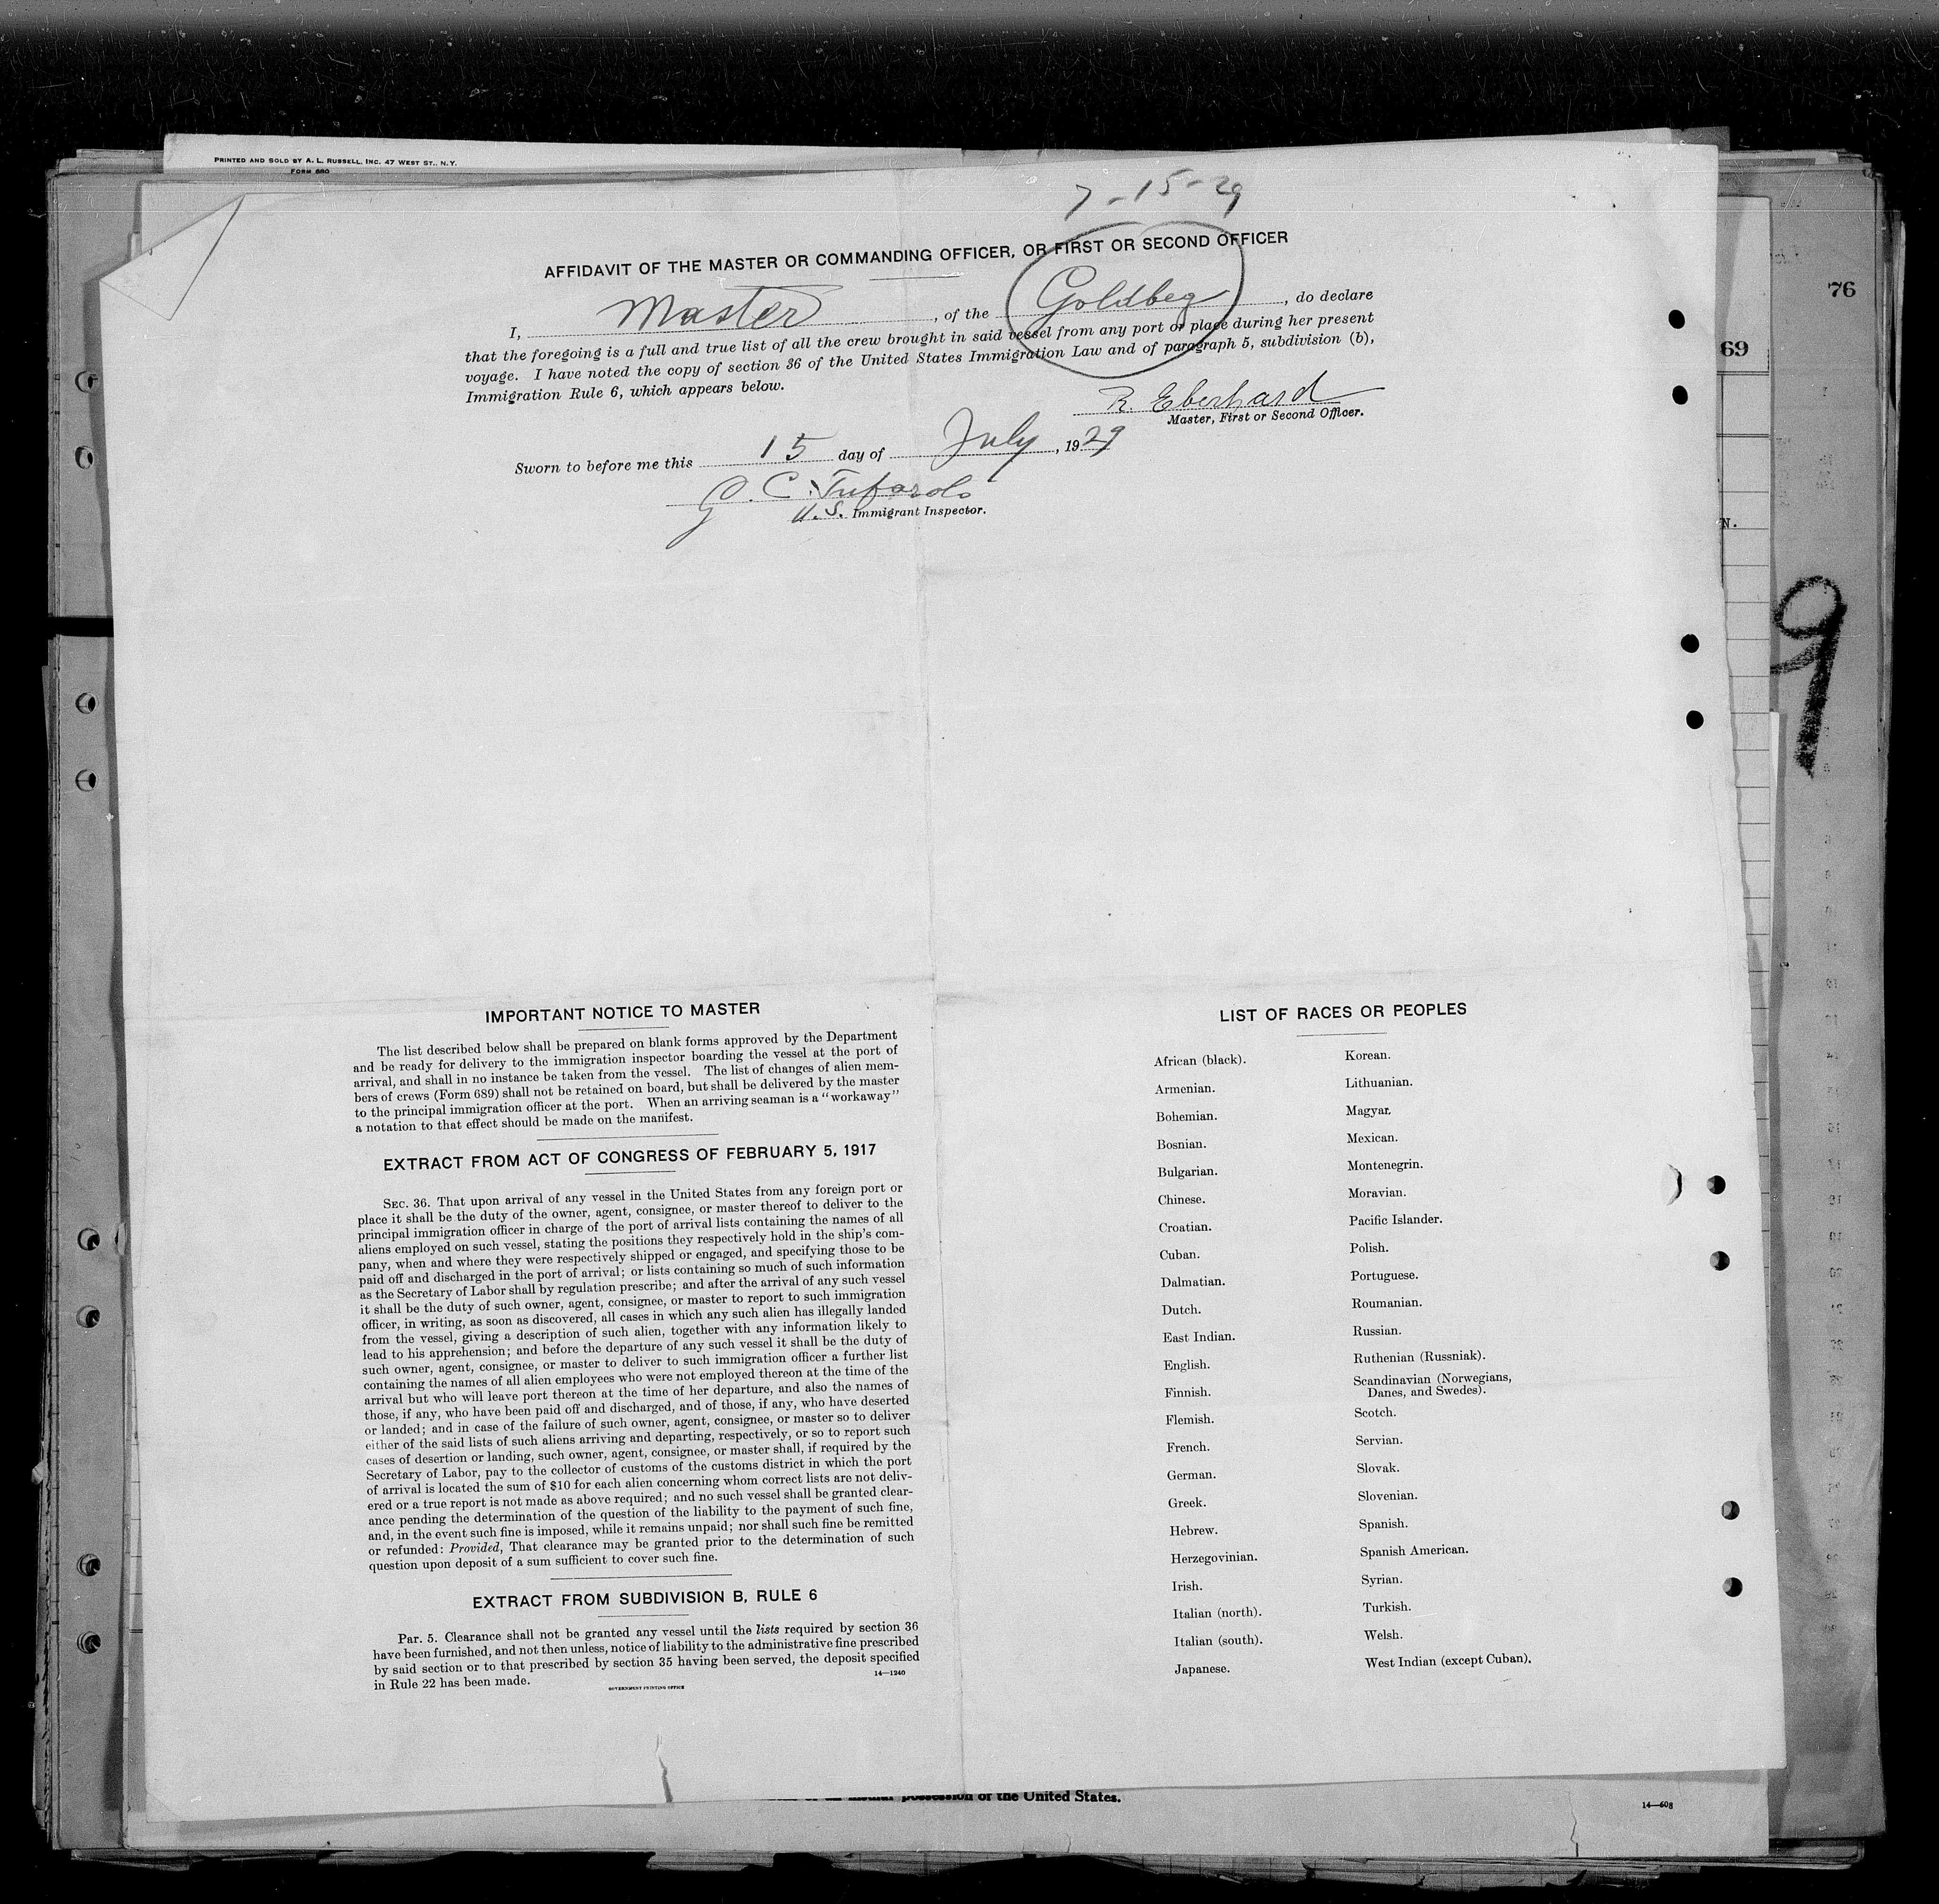 PRINTED AND SOLD BY A. L. RUSSELL, INC. 47 WEST ST., N.Y.
FORM 680
7-15-29
AFFIDAVIT OF THE MASTER OR COMMANDING OFFICER, OR FIRST OR SECOND OFFICER
I, Master, of the Goldbeg, do declare
that the foregoing is a full and true list of all the crew brought in said vessel from any port or place during her present
voyage. I have noted the copy of section 36 of the United States Immigration Law and of paragraph 5, subdivision (b),
Immigration Rule 6, which appears below.
R. Eberhard
Master, First or Second Officer.
Sworn to before me this 15 day of July, 1929
U.S. Immigrant Inspector.
76
69
N.
9
IMPORTANT NOTICE TO MASTER
The list described below shall be prepared on blank forms approved by the Department
and be ready for delivery to the immigration inspector boarding the vessel at the port of
arrival, and shall in no instance be taken from the vessel. The list of changes of alien mem-
bers of crews (Form 689) shall not be retained on board, but shall be delivered by the master
to the principal immigration officer at the port. When an arriving seaman is a "workaway"
a notation to that effect should be made on the manifest.
EXTRACT FROM ACT OF CONGRESS OF FEBRUARY 5, 1917
SEC. 36. That upon arrival of any vessel in the United States from any foreign port or
place it shall be the duty of the owner, agent, consignee, or master thereof to deliver to the
principal immigration officer in charge of the port of arrival lists containing the names of all
aliens employed on such vessel, stating the positions they respectively hold in the ship's com-
pany, when and where they were respectively shipped or engaged, and specifying those to be
paid off and discharged in the port of arrival; or lists containing so much of such information
as the Secretary of Labor shall by regulation prescribe; and after the arrival of any such vessel
it shall be the duty of such owner, agent, consignee, or master to report to such immigration
officer, in writing, as soon as discovered, all cases in which any such alien has illegally landed
from the vessel, giving a description of such alien, together with any information likely to
lead to his apprehension; and before the departure of any such vessel it shall be the duty of
such owner, agent, consignee, or master to deliver to such immigration officer a further list
containing the names of all alien employees who were not employed thereon at the time of the
arrival but who will leave port thereon at the time of her departure, and also the names of
those, if any, who have been paid off and discharged, and of those, if any, who have deserted
or landed; and in case of the failure of such owner, agent, consignee, or master so to deliver
either of the said lists of such aliens arriving and departing, respectively, or so to report such
cases of desertion or landing, such owner, agent, consignee, or master shall, if required by the
Secretary of Labor, pay to the collector of customs of the customs district in which the port
of arrival is located the sum of $10 for each alien concerning whom correct lists are not deliv-
ered or a true report is not made as above required; and no such vessel shall be granted clear-
ance pending the determination of the question of the liability to the payment of such fine,
and, in the event such fine is imposed, while it remains unpaid; nor shall such fine be remitted
or refunded: Provided, That clearance may be granted prior to the determination of such
question upon deposit of a sum sufficient to cover such fine.
EXTRACT FROM SUBDIVISION B, RULE 6
Par. 5. Clearance shall not be granted any vessel until the lists required by section 36
have been furnished, and not then unless, notice of liability to the administrative fine prescribed
by said section or to that prescribed by section 35 having been served, the deposit specified
in Rule 22 has been made.
14—1240
GOVERNMENT PRINTING OFFICE
LIST OF RACES OR PEOPLES
African (black).
Armenian.
Bohemian.
Bosnian.
Bulgarian.
Chinese.
Croatian.
Cuban.
Dalmatian.
Dutch.
East Indian.
English.
Finnish.
Flemish.
French.
German.
Greek.
Hebrew.
Herzegovinian.
Irish.
Italian (north).
Italian (south).
Japanese.
Korean.
Lithuanian.
Magyar.
Mexican.
Montenegrin.
Moravian.
Pacific Islander.
Polish.
Portuguese.
Roumanian.
Russian.
Ruthenian (Russniak).
Scandinavian (Norwegians,
Danes, and Swedes).
Scotch.
Servian.
Slovak.
Slovenian.
Spanish.
Spanish American.
Syrian.
Turkish.
Welsh.
West Indian (except Cuban).
possession of the United States.
14—608